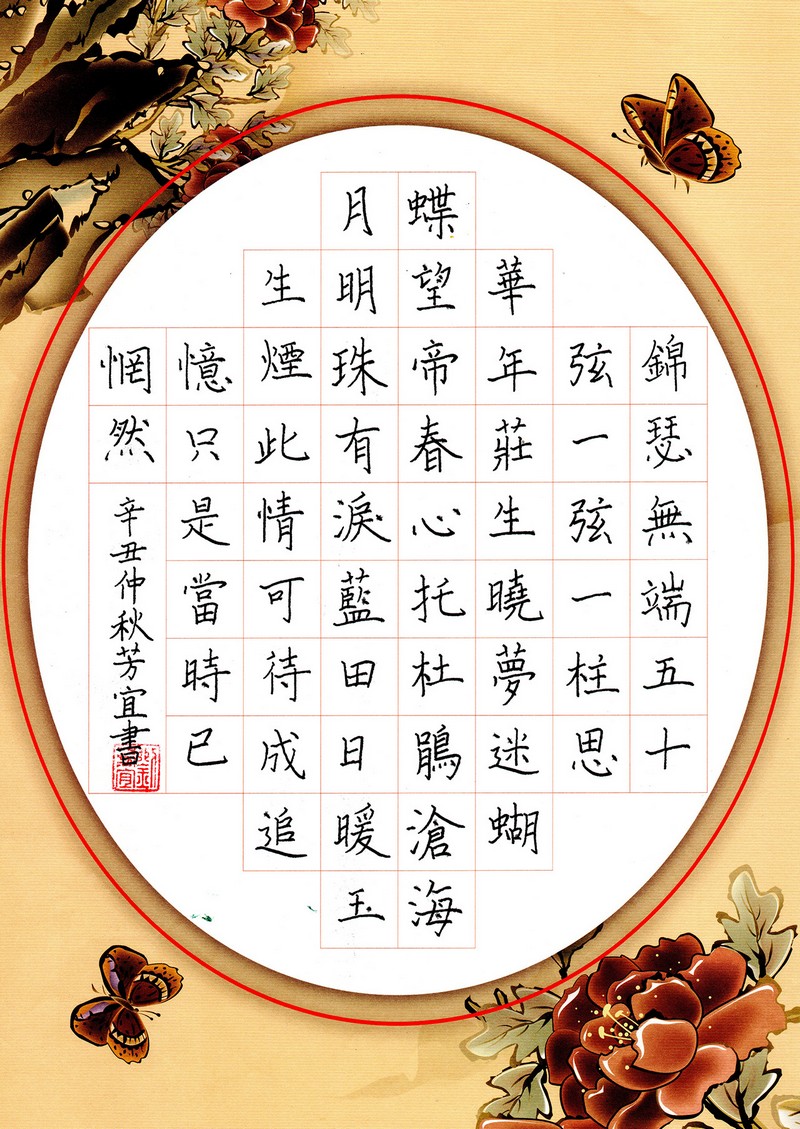 錦瑟無端五十
弦一弦一柱思
華年莊生曉夢迷蝴
蝶望帝春心托杜鵑滄海
月明珠有淚藍田日暖玉
生煙此情可待成追
憶只是當時已
惘然
辛丑仲秋芳宜書